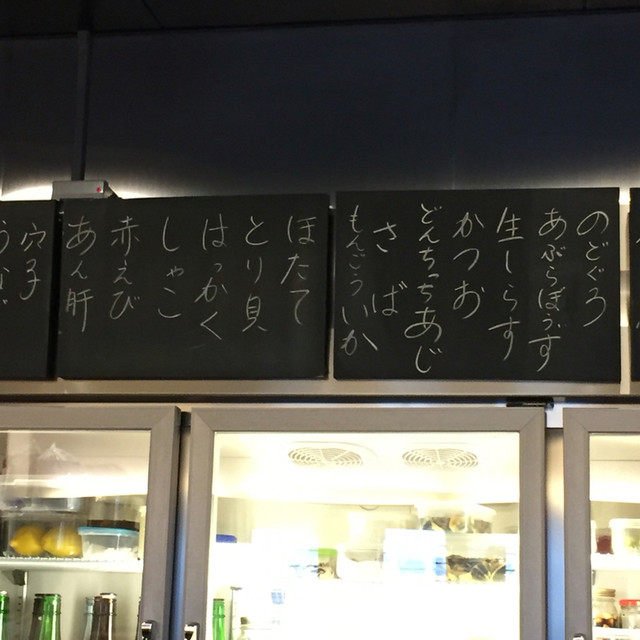 のどぐろ
あぶらぼうず
生しらす
かつお
どんちっちあじ
さば
もんごういか
ほたて
とり貝
はっかく
しゃこ
赤えび
あん肝
穴子